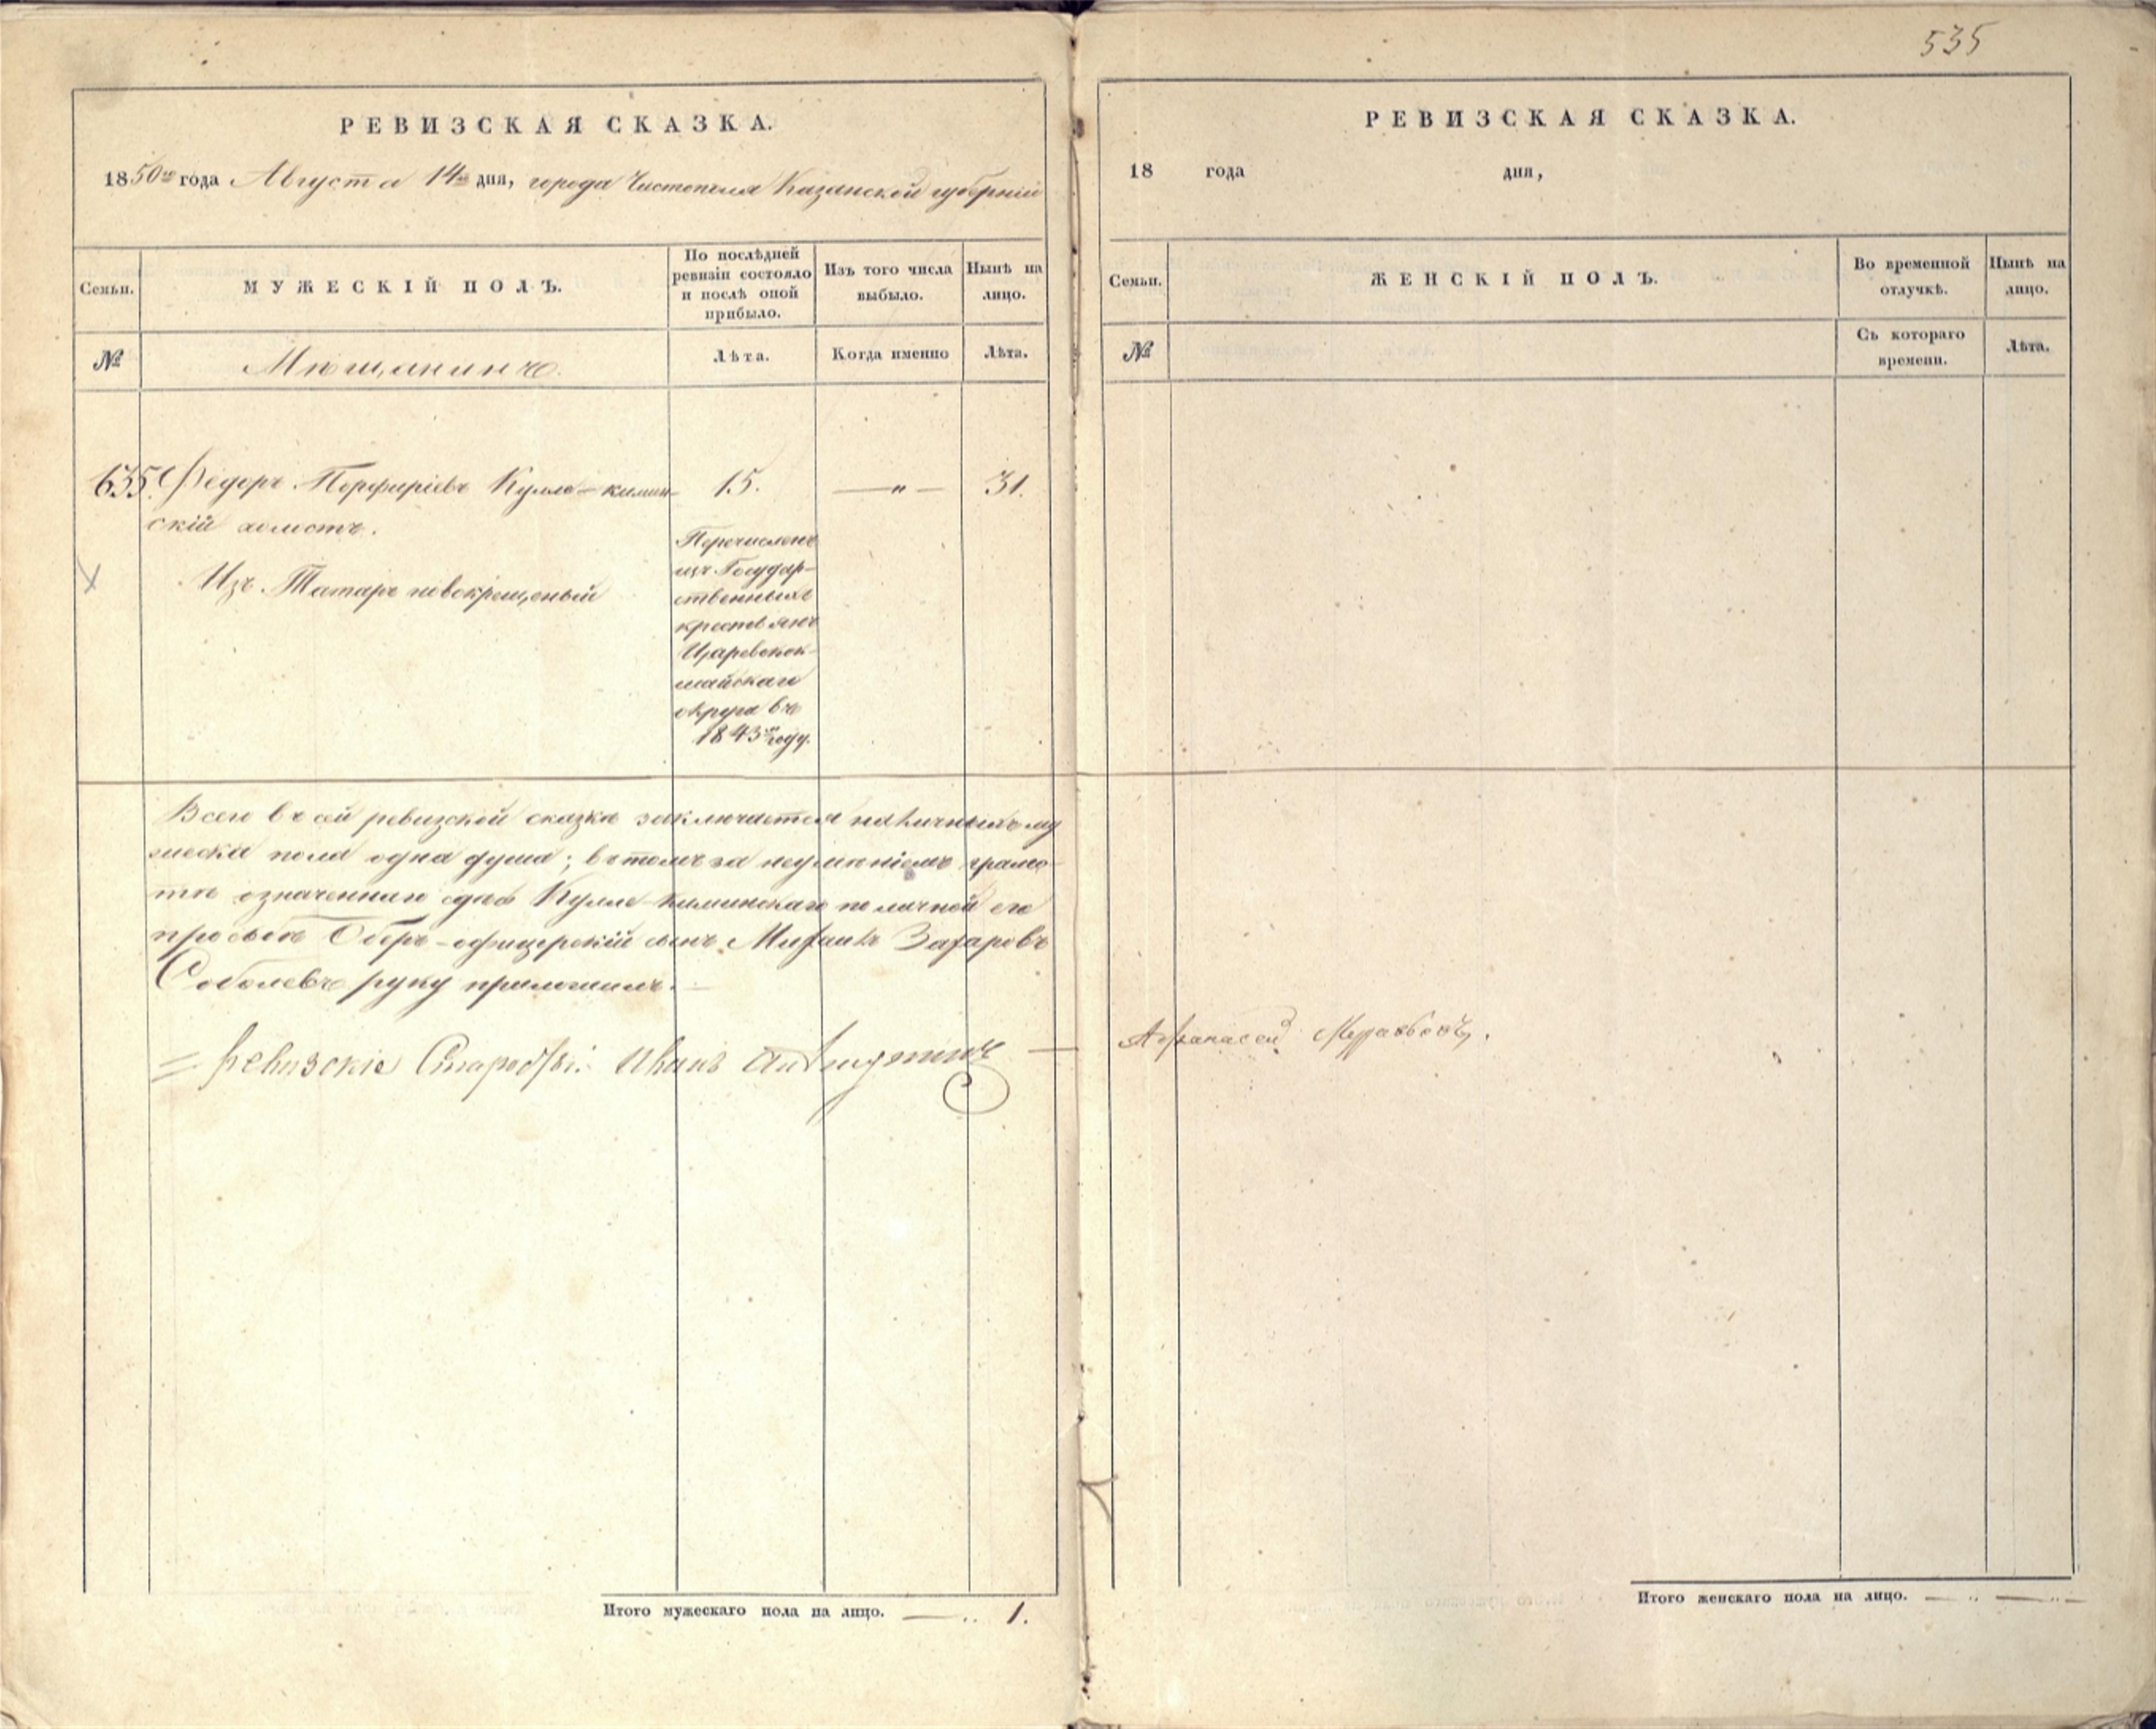 535
РЕВИЗСКАЯ СКАЗКА.
1850го года Августа 14го дня, города Чистополя Казанской губерніи
Семьи.
МУЖЕСКІЙ ПОЛЪ.
По послѣдней ревизіи состояло и послѣ оной прибыло.
Изъ того числа выбыло.
Нынѣ на лицо.
№
Мѣщанинъ.
Лѣта.
Когда именно
Лѣта.
635. Федоръ Порфирьевъ Кулле-кимин- 15. —„— 31.
скій холостъ.
Изъ Татаръ новокрещеный
Перечисленъ
изъ Государ-
ственныхъ
крестьянъ
Царевокок-
шайскаго
округа въ
1843мъ году.
Всего въ сей ревизской сказкѣ заключается наличныхъ му
жеска пола одна душа; въ томъ за неумѣніемъ грамо-
тѣ означеннаго Кулле-киминскаго по личной его
просьбѣ Оберъ-офицерскій сынъ Михаилъ Захаровъ
Соболевъ руку приложилъ.
Ревизскіе Иванъ
Итого мужескаго пола на лицо. — „ 1.
РЕВИЗСКАЯ СКАЗКА.
18 года дня,
Семьи.
ЖЕНСКІЙ ПОЛЪ.
Во временной отлучкѣ.
Нынѣ на лицо.
№
Съ котораго времени.
Лѣта.
Афанасей
Итого женскаго пола на лицо. — „ — „ —